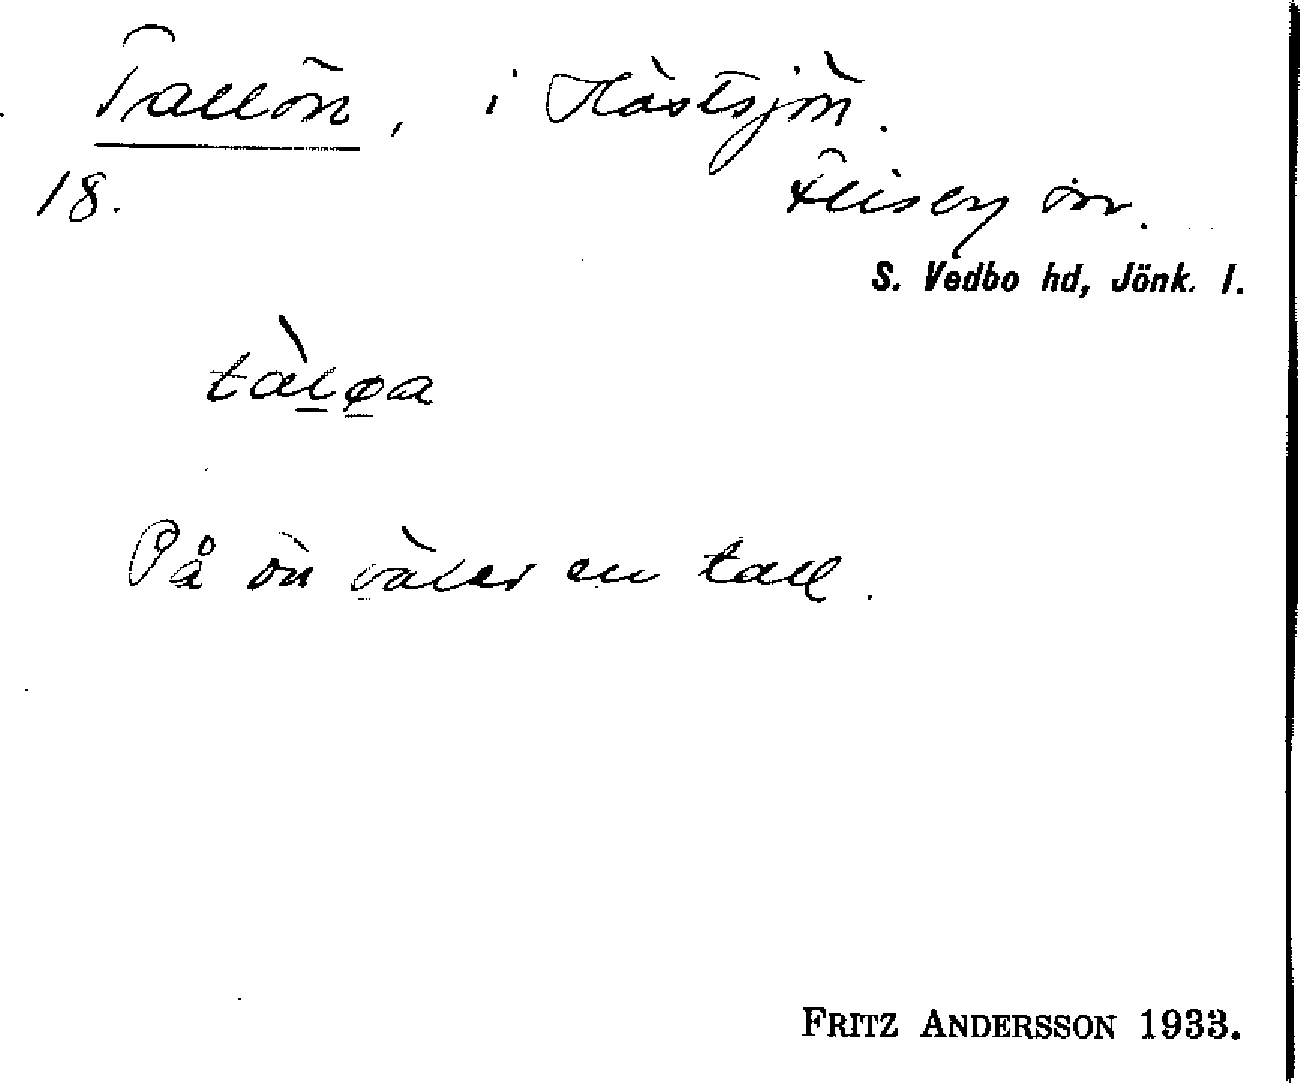 Tallön, i Hästsjön.
18. Flisby sn.
S. Vedbo hd, Jönk. l.
tàløa
På ön växer en tall.
FRITZ ANDERSSON 1933.